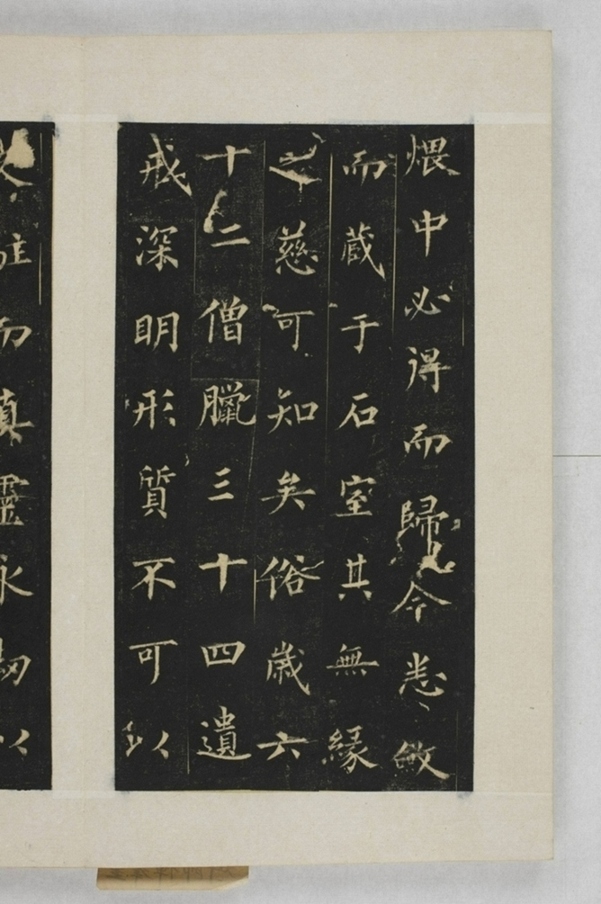 煨中必得而歸今悉斂
而藏于石室其無緣
之慈可知矣俗歲六
十二僧臘三十四遺
戒深明形質不可以
久駐而真靈永劫以